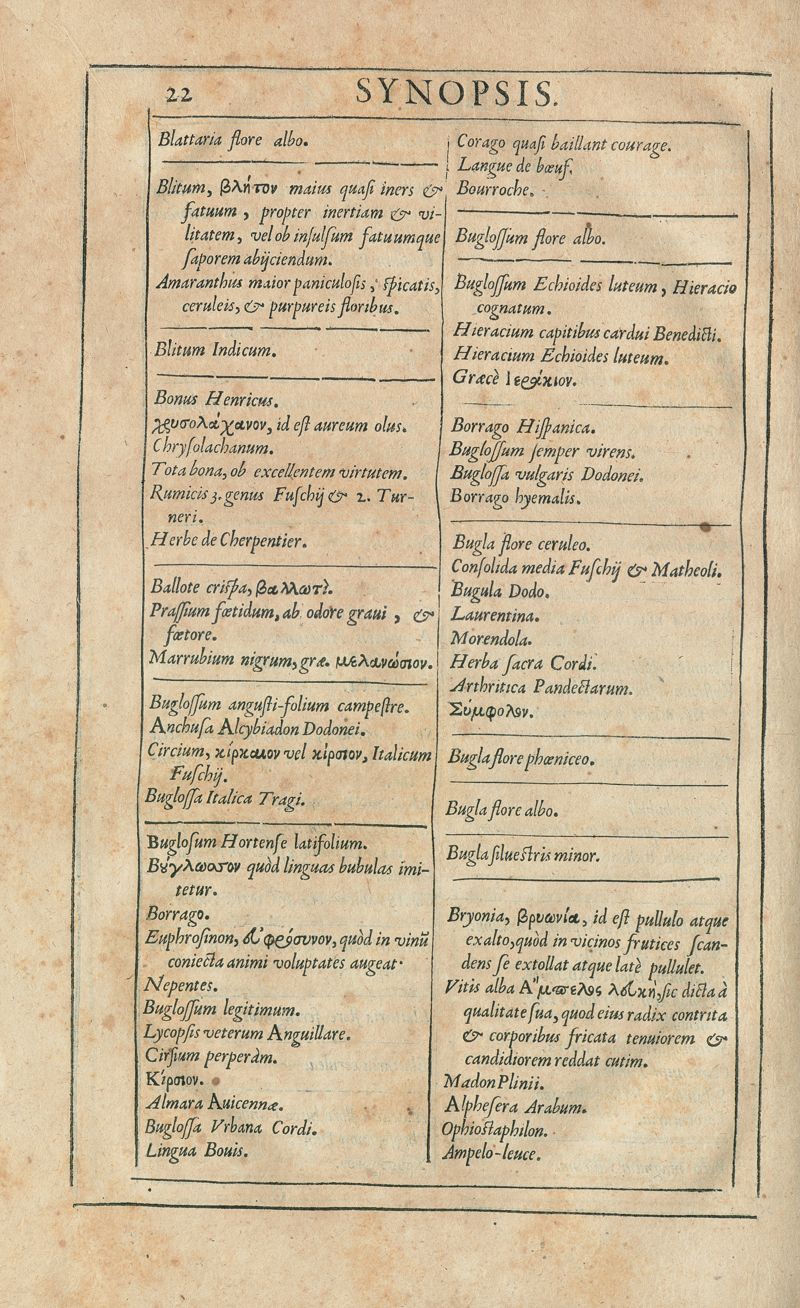 22
SYNOPSIS.
Blattaria flore albo.
Blitum, βλήτον maius quaſi iners &
fatuum , propter inertiam & vi-
litatem, vel ob inſulſum fatuumque
ſaporem abijciendum.
Amaranthus maior paniculoſis , ſpicatis,
ceruleis, & purpureis floribus.
Blitum Indicum.
Bonus Henricus.
χρυσολάχανον, id eſt aureum olus.
Chryſolachanum.
Tota bona, ob excellentem virtutem.
Rumicis 3. genus Fuſchij & 2. Tur-
neri.
Herbe de Cherpentier.
Ballote criſpa, βαλλωτὶ.
Praſſium fœtidum, ab odore graui , &
fœtore.
Marrubium nigrum, græ. μελανώσιον.
Bugloſſum anguſti-folium campeſtre.
Anchuſa Alcybiadon Dodonei.
Circium, κίρκαιον vel κίρσιον, Italicum
Fuſchij.
Bugloſſa Italica Tragi.
Bugloſum Hortenſe latifolium.
Βύγλωσσον quòd linguas bubulas imi-
tetur.
Borrago.
Euphroſinon, ἐυφρόσυνον, quòd in vinũ
coniecta animi voluptates augeat.
Nepentes.
Bugloſſum legitimum.
Lycopſis veterum Anguillare.
Cirſium perperàm.
Κίρσιον.
Almara Auicennæ.
Bugloſſa Vrbana Cordi.
Lingua Bouis.
Corago quaſi baillant courage.
Langue de bœuf.
Bourroche.
Bugloſſum flore albo.
Bugloſſum Echioides luteum , Hieracio
cognatum.
Hieracium capitibus cardui Benedicti.
Hieracium Echioides luteum.
Græcè ἱεράκιον.
Borrago Hiſpanica.
Bugloſſum ſemper virens.
Bugloſſa vulgaris Dodonei.
Borrago hyemalis.
Bugla flore ceruleo.
Conſolida media Fuſchij & Matheoli.
Bugula Dodo.
Laurentina.
Morendola.
Herba ſacra Cordi.
Arthritica Pandectarum.
Σύμφολον.
Bugla flore phœniceo.
Bugla flore albo.
Bugla ſilueſtris minor.
Bryonia, βρυωνία, id eſt pullulo atque
exalto, quòd in vicinos frutices ſcan-
dens ſe extollat atque latè pullulet.
Vitis alba Ἄμπελος λευκὴ, ſic dicta à
qualitate ſua, quod eius radix contrita
& corporibus fricata tenuiorem &
candidiorem reddat cutim.
Madon Plinii.
Alpheſera Arabum.
Ophioſtaphilon.
Ampelo-leuce.